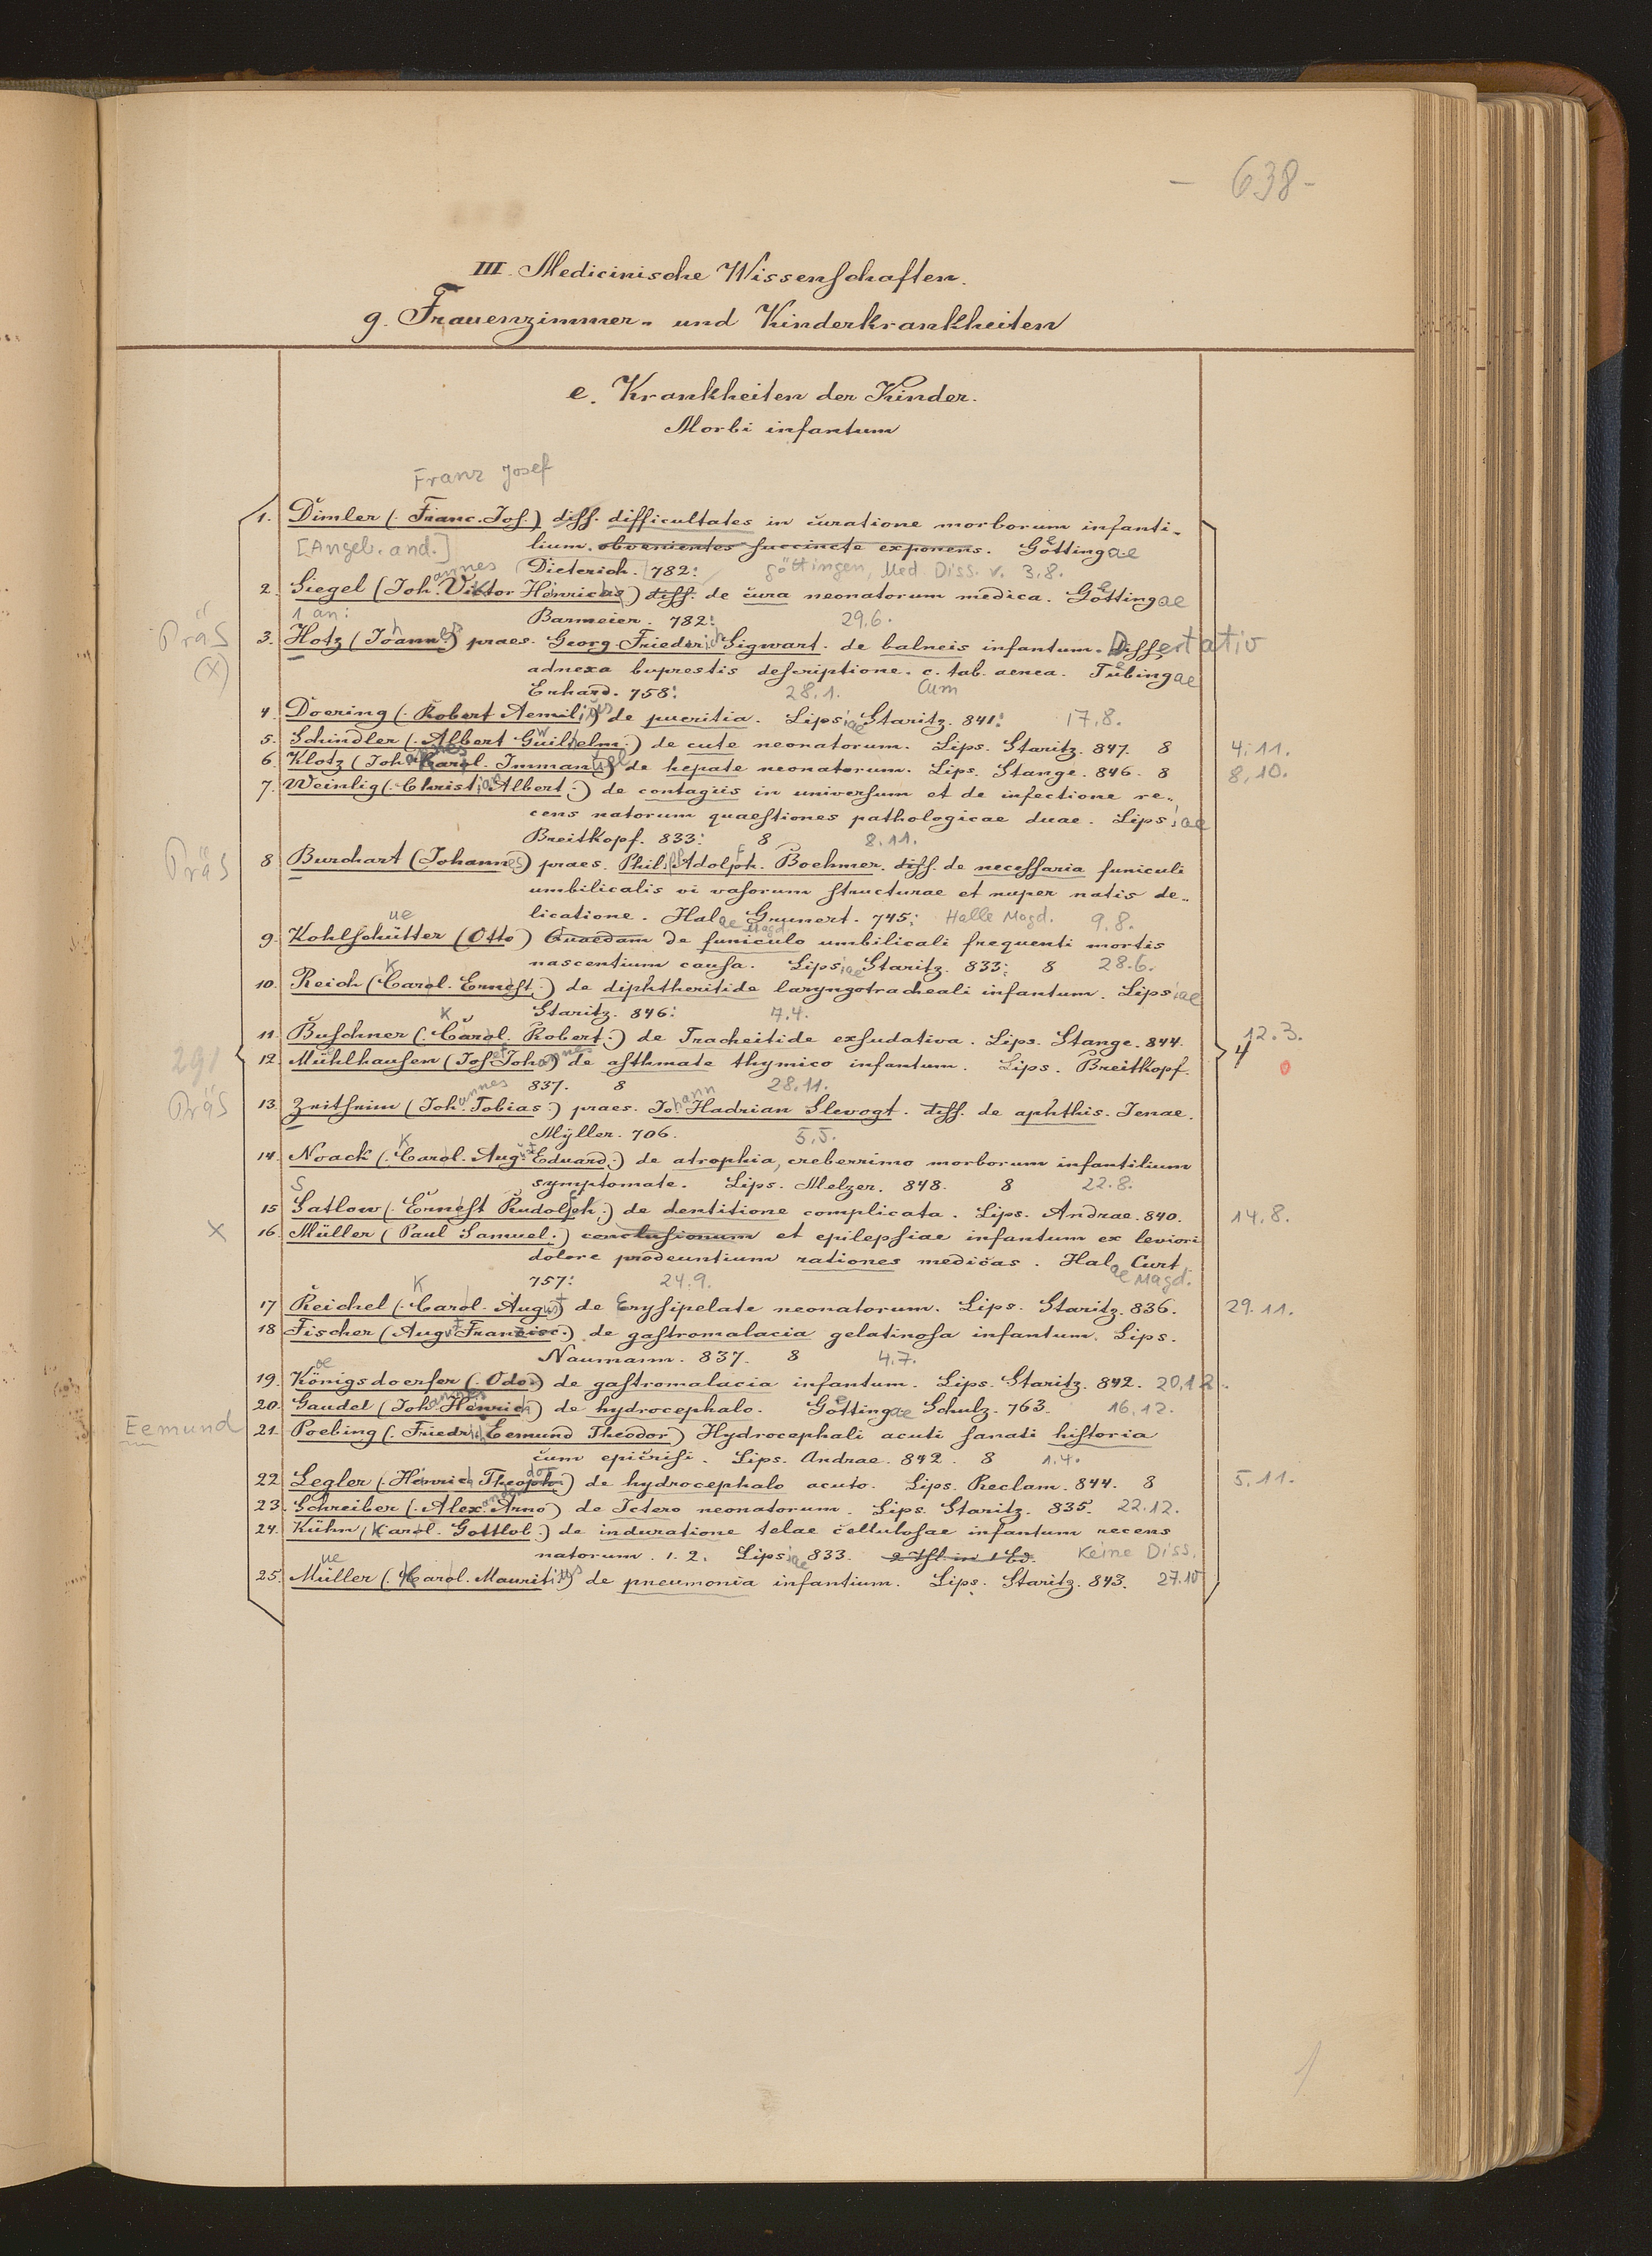 - 638 -
III. Medicinische Wissenschaften.
g. Frauenzimmer- und Kinderkrankheiten
e. Krankheiten der Kinder.
Morbi infantum
Franz Josef
1. Dimler (Franc. Jos.) diss. difficultates in curatione morborum infanti-
[Angeb. and.] lium. obvenientes succincte exponens. Göttingae
Dieterich. 782: Göttingen, Med. Diss. v. 3.8.
2. Siegel (Johannes Viktor Henricus) diss. de cura neonatorum medica. Göttingae
1 an: Barmeier. 782: 29.6.
Präs
3. Hotz (Johannes) praes. Georg Friederich Sigwart. de balneis infantum. Dissertatio
(X) adnexa buprestis descriptione. c. tab. aenea. Tübingae
Erhard. 758: 28.1. Cum
4. Doering (Robert Aemilius) de pueritia. Lipsiae Staritz. 841: 17.8.
5. Schindler (Albert Guilhelm.) de cute neonatorum. Lips. Staritz. 847. 8 4.11.
6. Klotz (Johannes Karl. Immanuel) de hepate neonatorum. Lips. Stange. 846. 8 8.10.
7. Weinlig (Christian Albert) de contagiis in universum et de infectione re-
cens natorum quaestiones pathologicae duae. Lipsiae
Breitkopf. 833: 8 8.11.
Präs
8 Burchart (Johannes) praes. Phil. Adolph. Boehmer. diss. de necessaria funiculi
umbilicalis vi vasorum structurae et nuper natis de-
licatione. Halae Magd. Grunert. 745: Halle Magd. 9.8.
9. Kohlschütter (Otto) Quaedam de funiculo umbilicali frequenti mortis
nascentium causa. Lipsiae Staritz. 833: 8 28.6.
10. Reich (Carol. Ernest.) de diphtheritide laryngotracheali infantum. Lipsiae
Staritz. 846: 7.4.
11. Buschner (Carol. Robert.) de Tracheitide exsudativa. Lips. Stange. 844. 12.3.
291
12. Mühlhausen (Jos. Johannes) de asthmate thymico infantum. Lips. Breitkopf. 4
837. 8 28.11.
Präs
13. Zeitheim (Johannes Tobias) praes. Johann Hadrian Slevogt. diss. de aphthis. Jenae.
Müller. 706. 5.5.
14. Noack (Carol. August Eduard.) de atrophia, creberrimo morborum infantilium
symptomate. Lips. Melzer. 848. 8 22.8.
15 Satlow (Ernest Rudolph.) de dentitione complicata. Lips. Andrae. 840. 14.8.
X 16. Müller (Paul Samuel.) conclusionum et epilepsiae infantum ex leviori
dolore prodeuntium rationes medicas. Halae Magd. Curt.
757: 24.9.
17 Reichel (Carol. August) de Erysipelate neonatorum. Lips. Staritz. 836. 29.11.
18 Fischer (August Francisc.) de gastromalacia gelatinosa infantum. Lips.
Naumann. 837. 8 4.7.
19. Königsdoerfer (Odo) de gastromalacia infantum. Lips. Staritz. 842. 20.12.
20. Gaudel (Johannes Henrich) de hydrocephalo. Göttingae Schulz. 763. 16.12.
Eemund
21. Poebing (Friedrich Eemund Theodor) Hydrocephali acuti sanati historia
cum epicrisi. Lips. Andrae. 842. 8 1.4.
22 Legler (Henrich Theoph.) de hydrocephalo acuto. Lips. Reclam. 844. 8 5.11.
23. Schreiber (Alexander Arno) de Ictero neonatorum. Lips. Staritz. 835. 22.12.
24. Kühn (Karol. Gottlob.) de induratione telae cellulosae infantum recens
natorum. 1. 2. Lipsiae 833. 2 Thl. in 1 Bd. Keine Diss.
25. Müller (Carol. Mauritius) de pneumonia infantium. Lips. Staritz. 843. 27.10
1